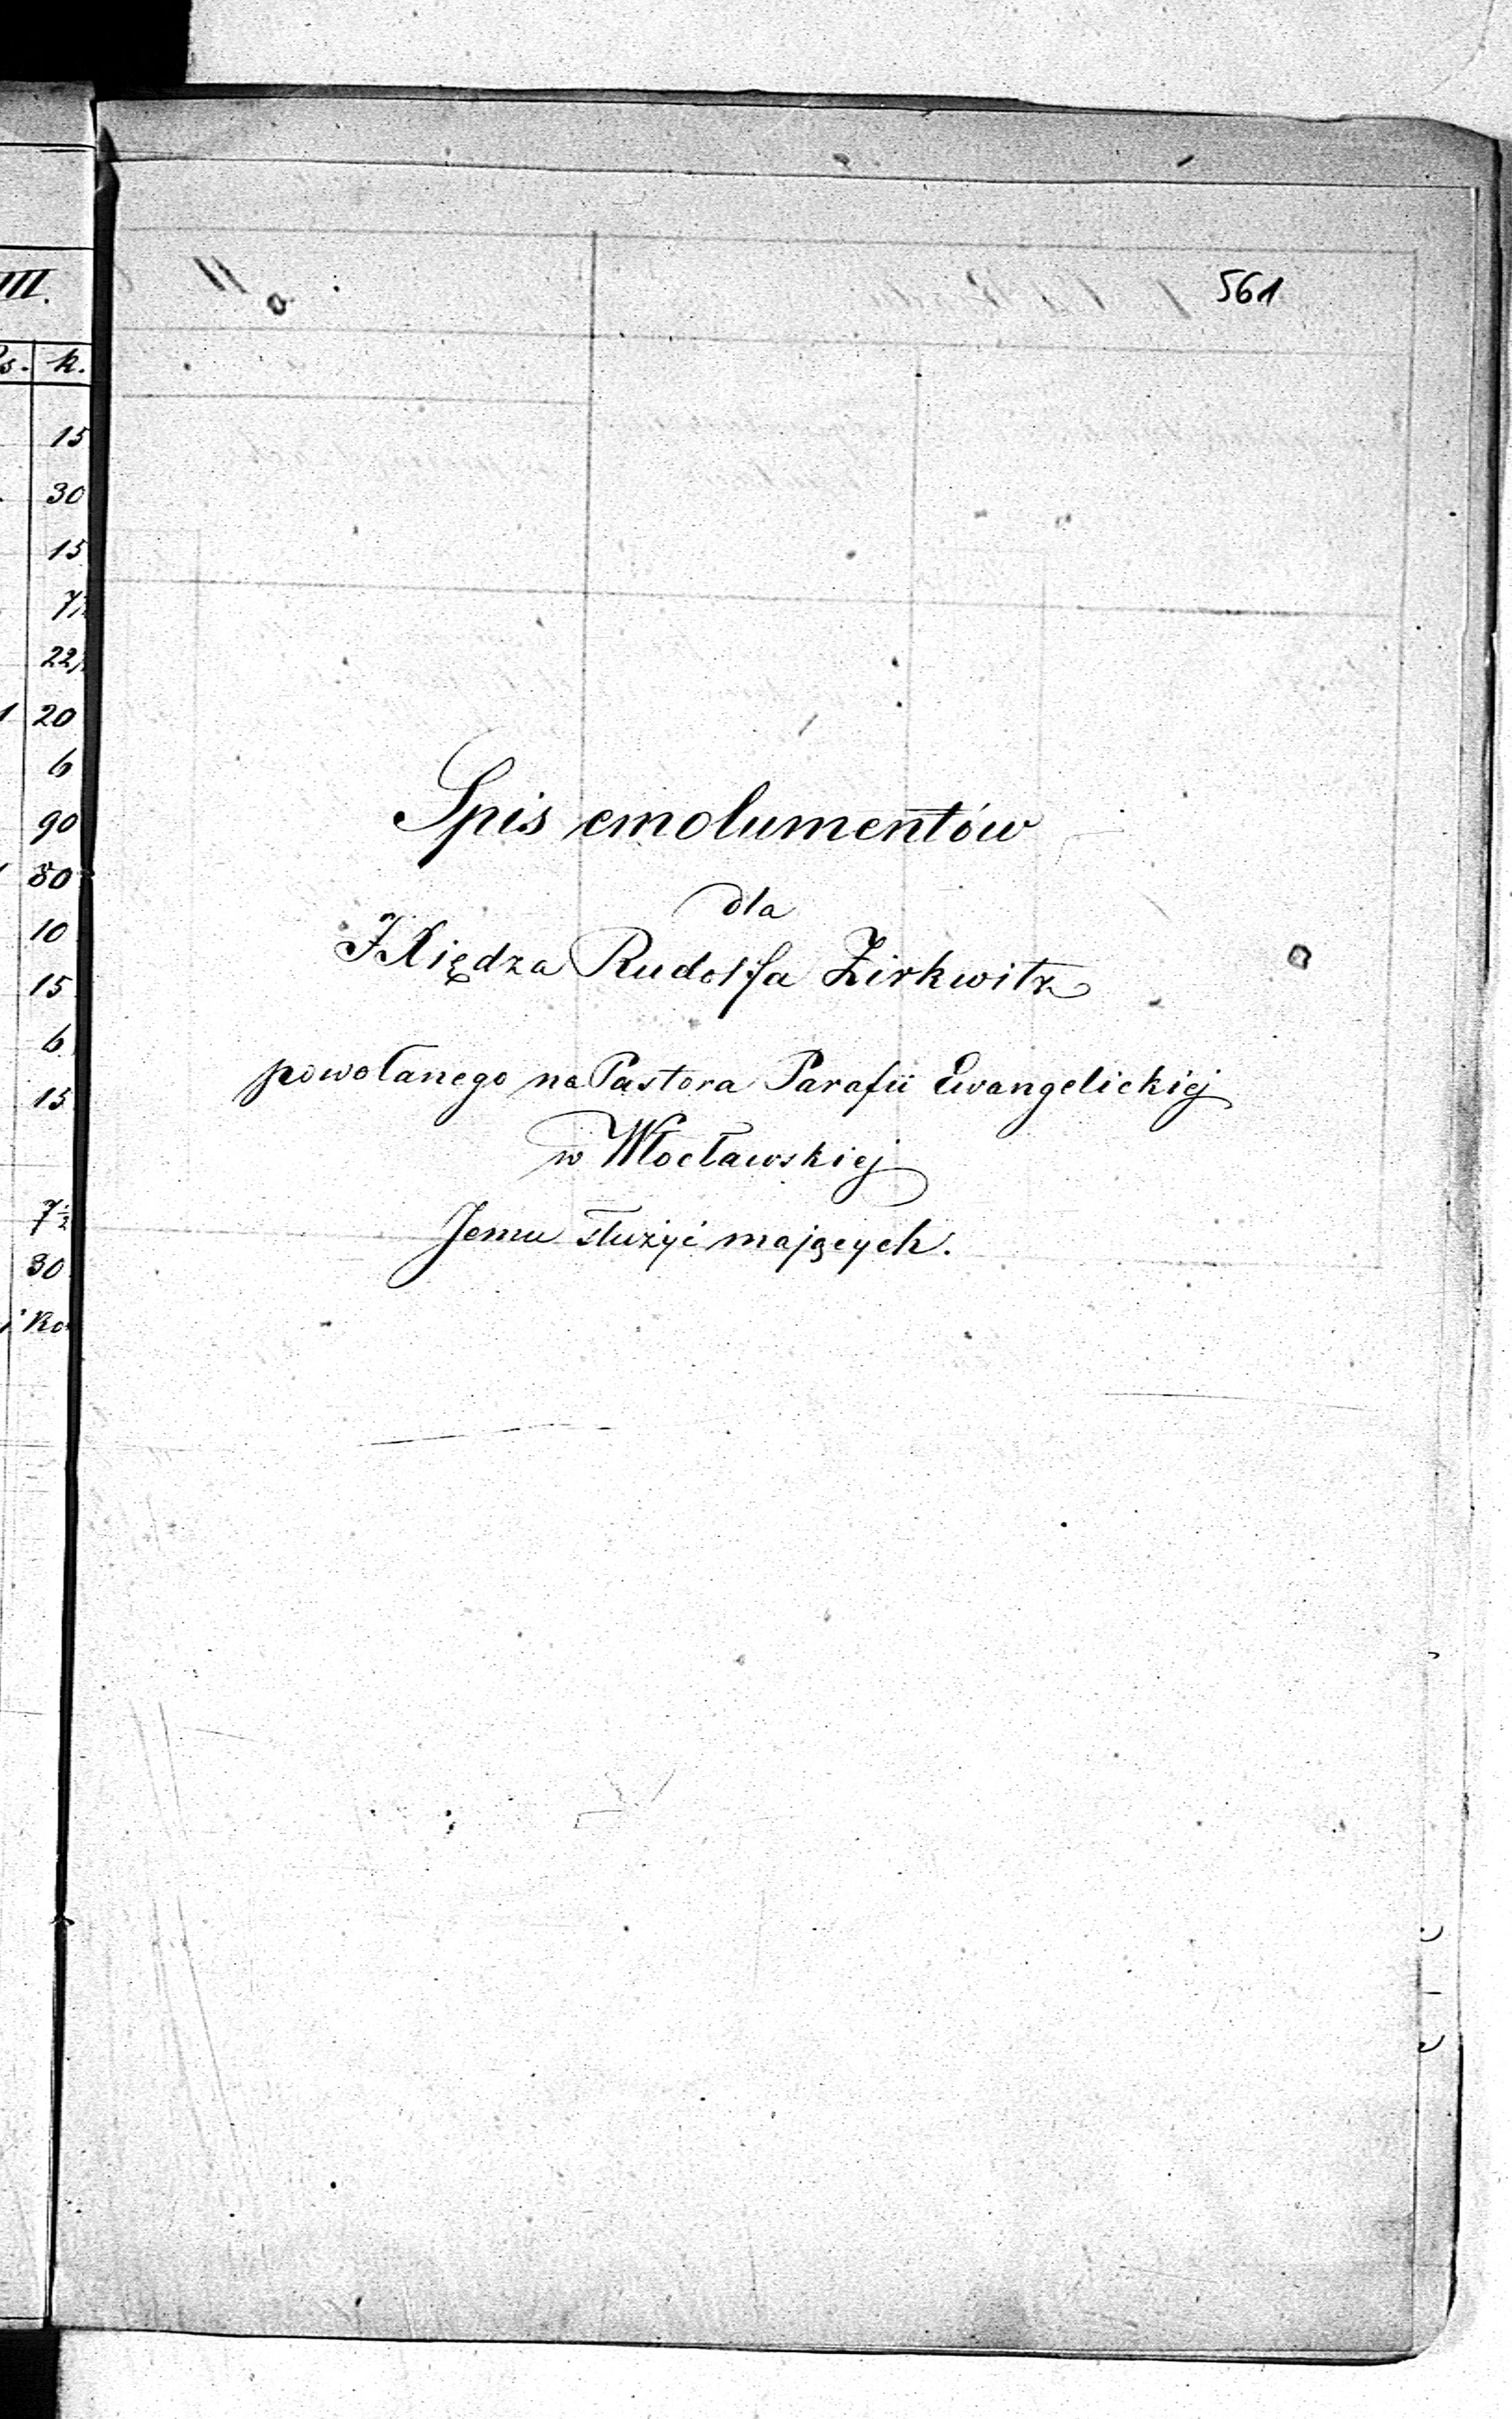 III.
k.
15
30
15
7½
22½
1 20
6
90
80
10
15
6
15
7½
30
i ko
561
Spis emolumentów
dla
Xiędza Rudolfa Zirkwitz
powołanego na Pastora Parafii Ewangelickiej
w Włocławskiej
Jemu służyć mających.